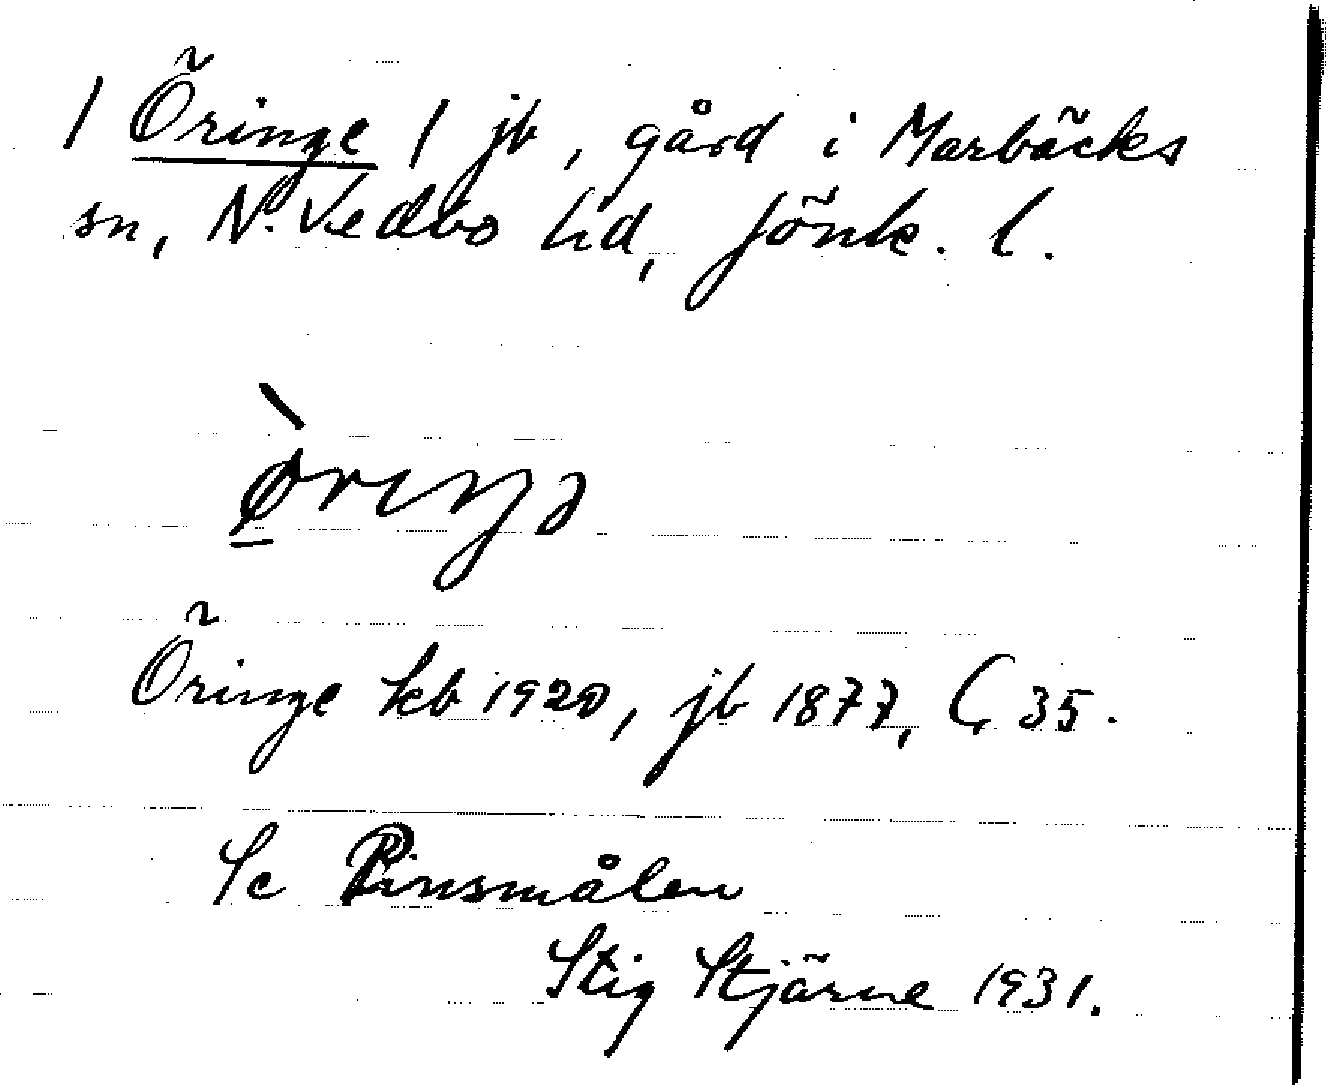 / Öringe / jb, gård i Marbäcks
sn, N. Vedbo hd, Jönk. l.
Öringe kb 1920, jb 1877, G 35.
Se Pinsmålen
Stig Stjärne 1931.